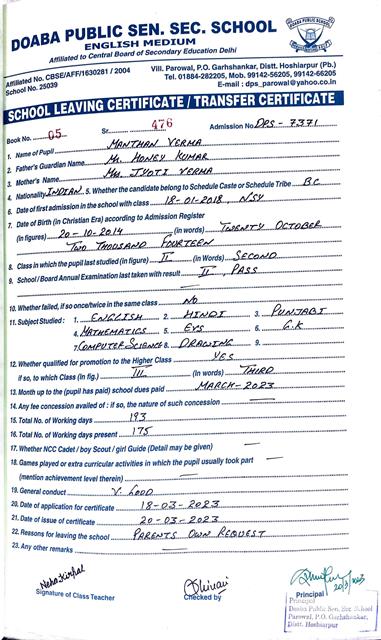 DOABA PUBLIC SEN. SEC. SCHOOL
ENGLISH MEDIUM
Affiliated to Central Board of Secondary Education Delhi
Affiliated No. CBSE/AFF/1630281 / 2004
School No. 25039
Vill. Parowal, P.O. Garhshankar, Distt. Hoshiarpur (Pb.)
Tel. 01884-282205, Mob. 99142-56205, 99142-66205
E-mail : dps_parowal@yahoo.co.in
SCHOOL LEAVING CERTIFICATE / TRANSFER CERTIFICATE
Book No. 05 Sr. 476 Admission No. DPS - 7371
1. Name of Pupil MANTHAN VERMA
2. Father's/Guardian Name Mr. HONEY KUMAR
3. Mother's Name Mrs. JYOTI VERMA
4. Nationality INDIAN 5. Whether the candidate belong to Schedule Caste or Schedule Tribe BC
6. Date of first admission in the school with class 18-01-2018, NSY
7. Date of Birth (in Christian Era) according to Admission Register
(in figures) 20-10-2014 (in words) TWENTY OCTOBER
TWO THOUSAND FOURTEEN
8. Class in which the pupil last studied (in figure) II (in Words) SECOND
9. School / Board Annual Examination last taken with result II, PASS
10. Whether failed, if so once/twice in the same class NO
11. Subject Studied : 1. ENGLISH 2. HINDI 3. PUNJABI
4. MATHEMATICS 5. EVS 6. G.K
7. COMPUTER SCIENCE 8. DRAWING 9.
12. Whether qualified for promotion to the Higher Class YES
if so, to which Class (in fig.) III (in words) THIRD
13. Month up to the (pupil has paid) school dues paid MARCH-2023
14. Any fee concession availed of : if so, the nature of such concession
15. Total No. of Working days 193
16. Total No. of Working days present 175
17. Whether NCC Cadet / boy Scout / girl Guide (Detail may be given)
18. Games played or extra curricular activities in which the pupil usually took part
(mention achievement level therein)
19. General conduct V. GOOD
20. Date of application for certificate 18-03-2023
21. Date of issue of certificate 20-03-2023
22. Reasons for leaving the school PARENTS OWN REQUEST
23. Any other remarks
Signature of Class Teacher
Checked by
Principal
Principal
Doaba Public Sen. Sec. School
Parowal, P.O. Garhshankar,
Distt. Hoshiarpur